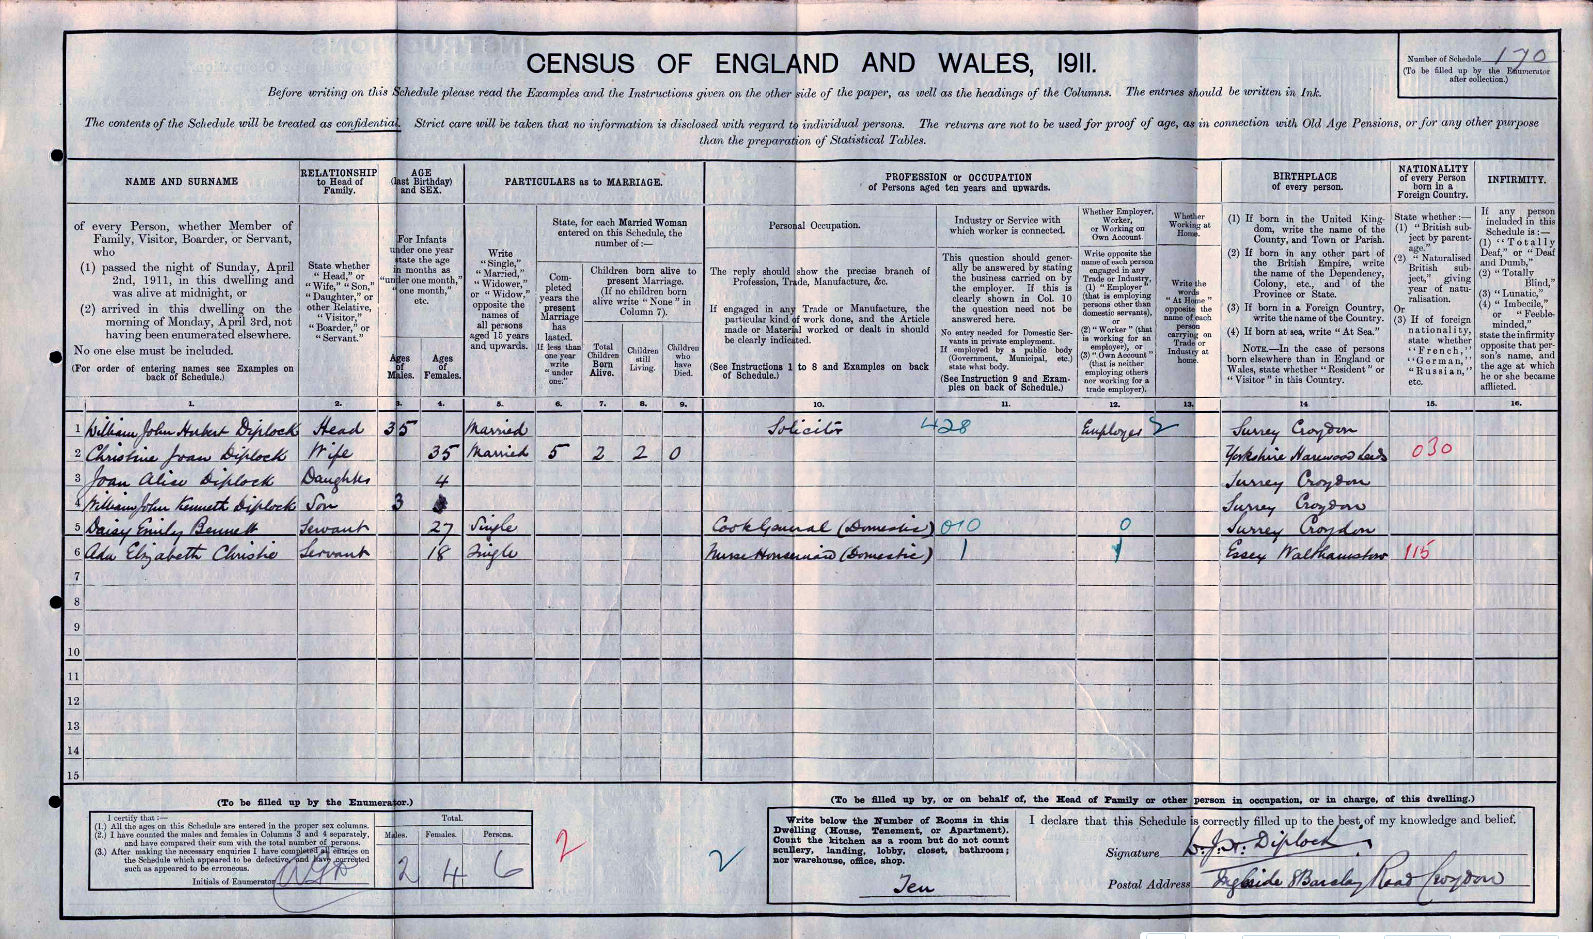 CENSUS OF ENGLAND AND WALES, 1911.
Number of Schedule 170
(To be filled up by the Enumerator
after collection.)
Before writing on this Schedule please read the Examples and the Instructions given on the other side of the paper, as well as the headings of the Columns. The entries should be written in Ink.
The contents of the Schedule will be treated as confidential. Strict care will be taken that no information is disclosed with regard to individual persons. The returns are not to be used for proof of age, as in connection with Old Age Pensions, or for any other purpose
than the preparation of Statistical Tables.
NAME AND SURNAME
of every Person, whether Member of
Family, Visitor, Boarder, or Servant,
who
(1) passed the night of Sunday, April
2nd, 1911, in this dwelling and
was alive at midnight, or
(2) arrived in this dwelling on the
morning of Monday, April 3rd, not
having been enumerated elsewhere.
No one else must be included.
(For order of entering names see Examples on
back of Schedule.)
RELATIONSHIP
to Head of
Family.
State whether
"Head," or
"Wife," "Son,"
"Daughter," or
other Relative,
"Visitor,"
"Boarder," or
"Servant."
AGE
(last Birthday)
and SEX.
For Infants
under one year
state the age
in months as
"under one month,"
"one month,"
etc.
Ages
of
Males.
Ages
of
Females.
PARTICULARS as to MARRIAGE.
Write
"Single,"
"Married,"
"Widower,"
or "Widow,"
opposite the
names of
all persons
aged 15 years
and upwards.
State, for each Married Woman
entered on this Schedule, the
number of:—
Com-
pleted
years the
present
Marriage
has
lasted.
If less than
one year
write
"under
one."
Children born alive to
present Marriage.
(If no children born
alive write "None" in
Column 7).
Total
Children
Born
Alive.
Children
still
Living.
Children
who
have
Died.
PROFESSION or OCCUPATION
of Persons aged ten years and upwards.
Personal Occupation.
The reply should show the precise branch of
Profession, Trade, Manufacture, &c.
If engaged in any Trade or Manufacture, the
particular kind of work done, and the Article
made or Material worked or dealt in should
be clearly indicated.
(See Instructions 1 to 8 and Examples on back
of Schedule.)
Industry or Service with
which worker is connected.
This question should gener-
ally be answered by stating
the business carried on by
the employer. If this is
clearly shown in Col. 10
the question need not be
answered here.
No entry needed for Domestic Ser-
vants in private employment.
If employed by a public body
(Government, Municipal, etc.)
state what body.
(See Instruction 9 and Exam-
ples on back of Schedule.)
Whether Employer,
Worker,
or Working on
Own Account.
Write opposite the
name of each person
engaged in any
Trade or Industry,
(1) "Employer"
(that is employing
persons other than
domestic servants),
or
(2) "Worker" (that
is working for an
employer), or
(3) "Own Account"
(that is neither
employing others
nor working for a
trade employer).
Whether
Working at
Home.
Write the
words
"At Home"
opposite the
name of each
person
carrying on
Trade or
Industry at
home.
BIRTHPLACE
of every person.
(1) If born in the United King-
dom, write the name of the
County, and Town or Parish.
(2) If born in any other part of
the British Empire, write
the name of the Dependency,
Colony, etc., and of the
Province or State.
(3) If born in a Foreign Country,
write the name of the Country.
(4) If born at sea, write "At Sea."
NOTE.—In the case of persons
born elsewhere than in England or
Wales, state whether "Resident" or
"Visitor" in this Country.
NATIONALITY
of every Person
born in a
Foreign Country.
State whether:—
(1) "British sub-
ject by parent-
age."
(2) "Naturalised
British sub-
ject," giving
year of natu-
ralisation.
Or
(3) If of foreign
nationality,
state whether
"French,"
"German,"
"Russian,"
etc.
INFIRMITY.
If any person
included in this
Schedule is:—
(1) "Totally
Deaf," or "Deaf
and Dumb,"
(2) "Totally
Blind,"
(3) "Lunatic,"
(4) "Imbecile,"
or "Feeble-
minded,"
state the infirmity
opposite that per-
son's name, and
the age at which
he or she became
afflicted.
1. 2. 3. 4. 5. 6. 7. 8. 9. 10. 11. 12. 13. 14 15. 16.
1 William John Hubert Diplock Head 35 Married Solicitor 428 Employer 2 Surrey Croydon
2 Christine Joan Diplock Wife 35 Married 5 2 2 0 Yorkshire Harewood Leeds 030
3 Joan Alise Diplock Daughter 4 Surrey Croydon
4 William John Kenneth Diplock Son 3 Surrey Croydon
5 Daisy Emily Bennett Servant 27 Single Cook General (Domestic) 010 0 Surrey Croydon
6 Ada Elizabeth Christie Servant 18 Single Nurse Housemaid (Domestic) 1 Essex Walthamstow 115
7
8
9
10
11
12
13
14
15
(To be filled up by the Enumerator.)
I certify that:—
(1.) All the ages on this Schedule are entered in the proper sex columns.
(2.) I have counted the males and females in Columns 3 and 4 separately,
and have compared their sum with the total number of persons.
(3.) After making the necessary enquiries I have completed all entries on
the Schedule which appeared to be defective, and have corrected
such as appeared to be erroneous.
Initials of Enumerator
Total.
Males. Females. Persons.
2 4 6
2
2
(To be filled up by, or on behalf of, the Head of Family or other person in occupation, or in charge, of this dwelling.)
Write below the Number of Rooms in this
Dwelling (House, Tenement, or Apartment).
Count the kitchen as a room but do not count
scullery, landing, lobby, closet, bathroom;
nor warehouse, office, shop.
Ten
I declare that this Schedule is correctly filled up to the best of my knowledge and belief.
Signature W. J. H. Diplock
Postal Address 8 Barclay Road Croydon